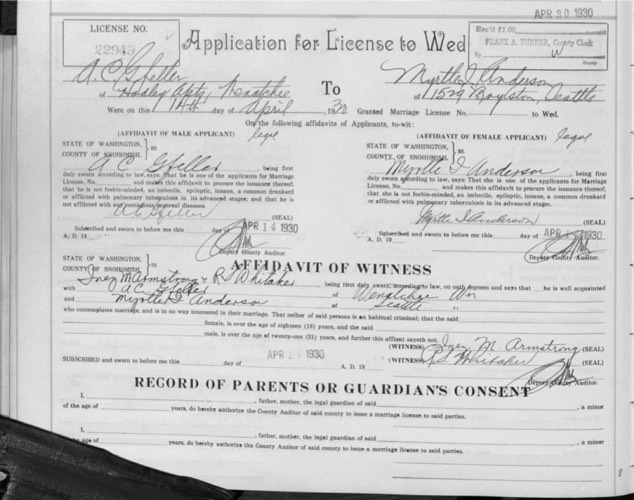 APR 30 1930
LICENSE NO.
22949
Application for License to Wed
Rec'd $1.00
FRANK A. TURNER, County Clerk
By W
Deputy
A. C. Gfeller
To
Myrtle I Anderson
of Hadley Apts, Wenatchee
of 1529 Boylston, Seattle
Were on this 14th day of April 1930 Granted Marriage License No. to Wed.
On the following affidavits of Applicants, to-wit:
(AFFIDAVIT OF MALE APPLICANT) legal
(AFFIDAVIT OF FEMALE APPLICANT) legal
STATE OF WASHINGTON, } ss.
COUNTY OF SNOHOMISH,
A C Gfeller, being first
duly sworn according to law, says: That he is one of the applicants for Marriage
License, No. and makes this affidavit to procure the issuance thereof;
that he is not feeble-minded, an imbecile, epileptic, insane, a common drunkard
or afflicted with pulmonary tuberculosis in its advanced stages; and that he is
not afflicted with any contagious venereal diseases.
A C Gfeller (SEAL)
Subscribed and sworn to before me this day of APR 14 1930
A. D. 19
Deputy County Auditor.
STATE OF WASHINGTON, } ss.
COUNTY OF SNOHOMISH,
Myrtle I Anderson, being first
duly sworn according to law, says: That she is one of the applicants for Marriage
License, No. and makes this affidavit to procure the issuance thereof;
that she is not feeble-minded, an imbecile, epileptic, insane, a common drunkard
or afflicted with pulmonary tuberculosis in its advanced stages.
Myrtle I Anderson (SEAL)
Subscribed and sworn to before me this day of APR 14 1930
A. D. 19
Deputy County Auditor.
AFFIDAVIT OF WITNESS
STATE OF WASHINGTON, } ss.
COUNTY OF SNOHOMISH,
Inez M Armstrong & R S Whitaker being first duly sworn, according to law, on oath deposes and says that he is well acquainted
with A C Gfeller of Wenatchee Wn
and Myrtle I Anderson of Seattle "
who contemplates marriage, and is in no way interested in their marriage. That neither of said persons is an habitual criminal; that the said
female, is over the age of eighteen (18) years, and the said
male, is over the age of twenty-one (21) years, and further this affiant sayeth not.
(WITNESS) Inez M Armstrong (SEAL)
SUBSCRIBED and sworn to before me this day of APR 14 1930
(WITNESS) R S Whitaker (SEAL)
A. D. 19
Deputy County Auditor.
RECORD OF PARENTS OR GUARDIAN'S CONSENT
I, , father, mother, the legal guardian of said , a minor
of the age of years, do hereby authorize the County Auditor of said county to issue a marriage license to said parties.
I, , father, mother, the legal guardian of said , a minor
age of years, do hereby authorize the County Auditor of said county to issue a marriage license to said parties.